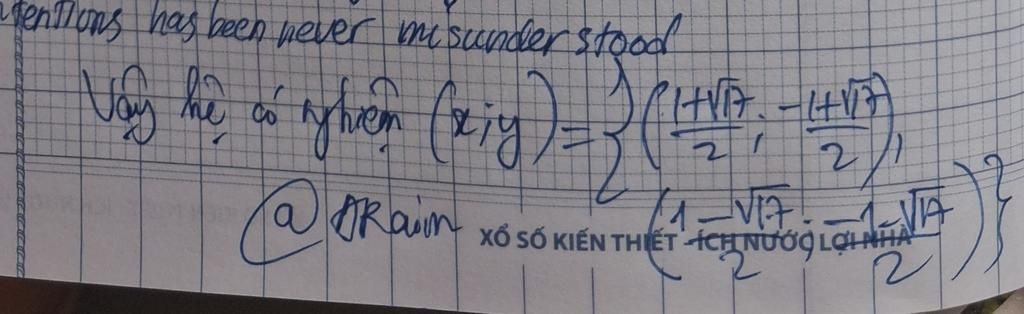 tentions has been never misunderstood
Vậy hệ có nghiệm (x;y) = {(1+√17/2; -1+√17/2),
@ ARain (1-√17/2; -1-√17/2)}
XỔ SỐ KIẾN THIẾT - ÍCH NƯỚC LỢI NHÀ